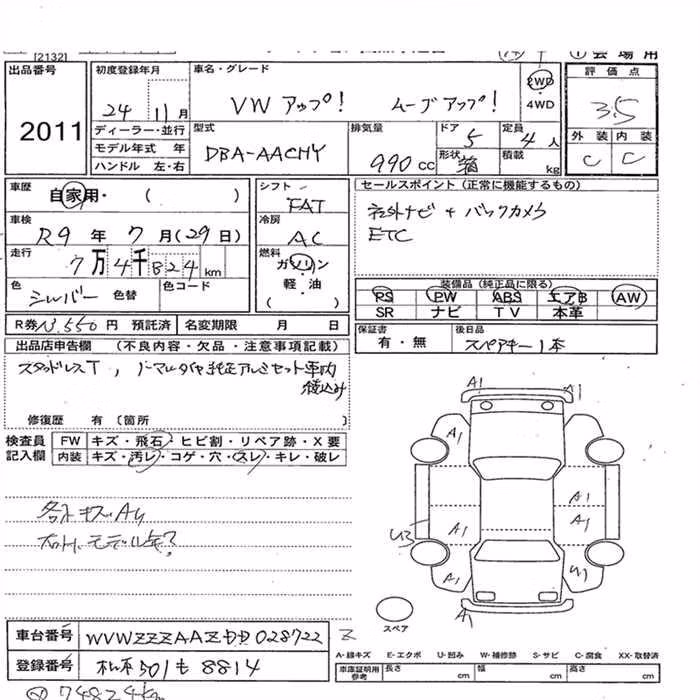 [2132]
出品番号
2011
初度登録年月
24 11月
ディーラー・並行
モデル年式 年
ハンドル 左・右
車名・グレード
VW アップ! ムーブアップ!
2WD
4WD
型式
DBA-AACHY
排気量
990 cc
ドア 5
形状 箱
定員 4 人
積載 kg
評価点
3.5
外装 内装
C C
車歴 自家用・( )
車検 R9 年 7 月(29日)
走行 7万4千824 km
色 シルバー 色替
色コード
シフト FAT
冷房 AC
燃料 ガソリン
軽・油
( )
セールスポイント (正常に機能するもの)
社外ナビ + バックカメラ
ETC
装備品 (純正品に限る)
PS PW ABS エアB AW
SR ナビ TV 本革
R券 13,550 円 預託済 名変期限 月 日
保証書 有・無
後日品 スペアキー1本
出品店申告欄 (不良内容・欠品・注意事項記載)
スタッドレスT, ノーマルタイヤ純正アルミセット車内
積込み
修復歴 有 (箇所 )
検査員記入欄
FW キズ・飛石・ヒビ割・リペア跡・X要
内装 キズ・汚レ・コゲ・穴・スレ・キレ・破レ
A1 A1
A1 A1
A1
A1 A1
U3
A1 U1
A1
スペア
車台番号 WVWZZZAAZDD028722
登録番号 松本 501 も 8814
A-線キズ E-エクボ U-凹み W-補修跡 S-サビ C-腐食 XX-取替済
車庫証明用参考 長さ cm 幅 cm 高さ cm
74824km